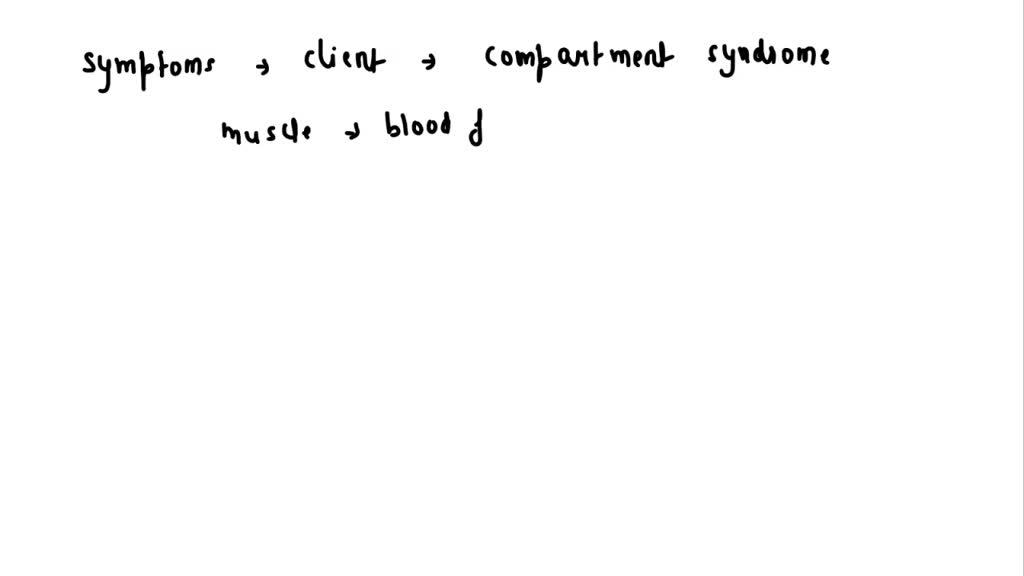 symptoms → client → compartment syndrome
muscle → blood f